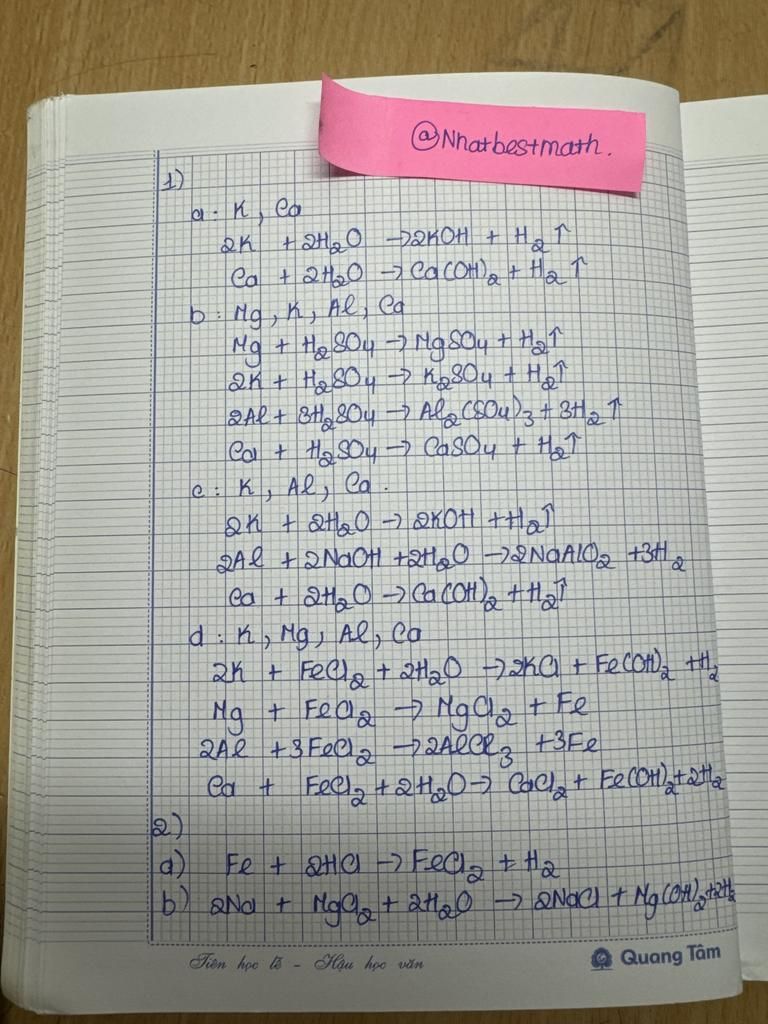 @Nhatbestmath.
1)
a : K, Ca
2K + 2H₂O → 2KOH + H₂↑
Ca + 2H₂O → Ca(OH)₂ + H₂↑
b : Mg, K, Al, Ca
Mg + H₂SO₄ → MgSO₄ + H₂↑
2K + H₂SO₄ → K₂SO₄ + H₂↑
2Al + 3H₂SO₄ → Al₂(SO₄)₃ + 3H₂↑
Ca + H₂SO₄ → CaSO₄ + H₂↑
c : K, Al, Ca.
2K + 2H₂O → 2KOH + H₂↑
2Al + 2NaOH + 2H₂O → 2NaAlO₂ + 3H₂
Ca + 2H₂O → Ca(OH)₂ + H₂↑
d : K, Mg, Al, Ca
2K + FeCl₂ + 2H₂O → 2KCl + Fe(OH)₂ + H₂
Mg + FeCl₂ → MgCl₂ + Fe
2Al + 3FeCl₂ → 2AlCl₃ + 3Fe
Ca + FeCl₂ + 2H₂O → CaCl₂ + Fe(OH)₂ + 2H₂
2)
a) Fe + 2HCl → FeCl₂ + H₂
b) 2Na + MgCl₂ + 2H₂O → 2NaCl + Mg(OH)₂ + 2H₂
Tiên học lễ - Hậu học văn
Quang Tâm